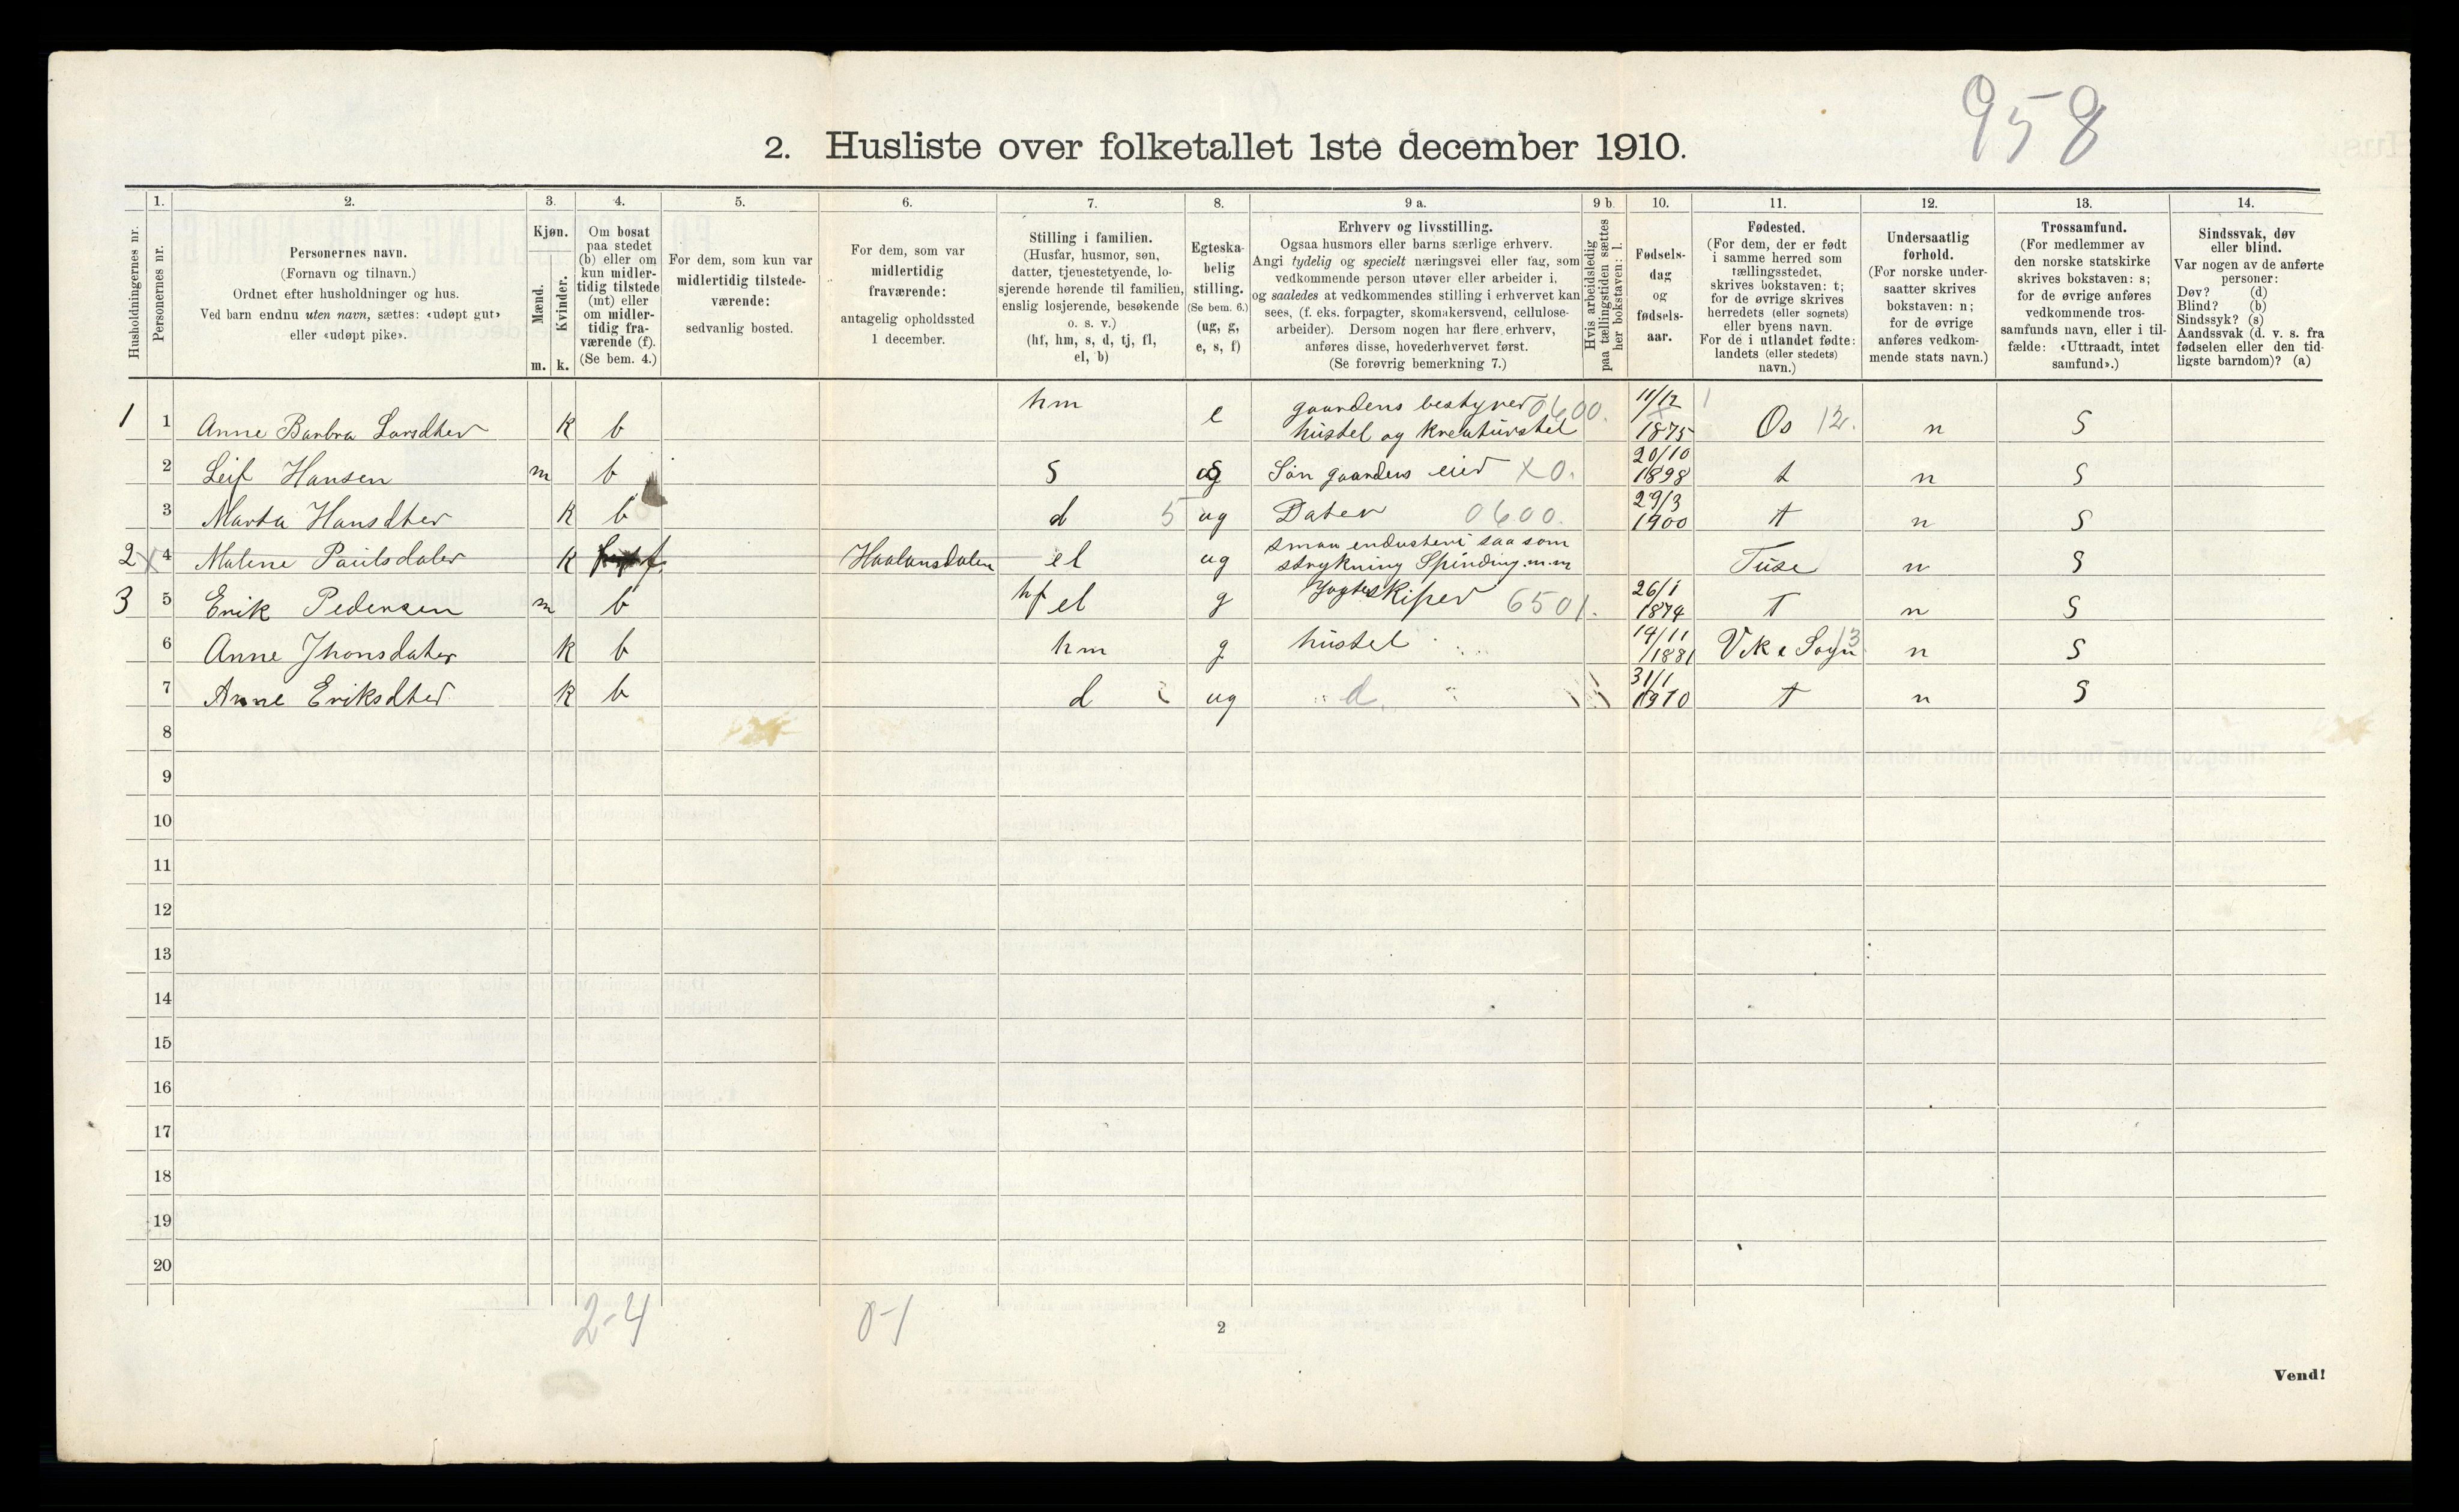 958
2. Husliste over folketallet 1ste december 1910.
Husholdningernes nr.
1.
Personernes nr.
2.
Personernes navn.
(Fornavn og tilnavn.)
Ordnet efter husholdninger og hus.
Ved barn endnu uten navn, sættes: «udøpt gut»
eller «udøpt pike».
3.
Kjøn.
Mænd.
Kvinder.
m. k.
4.
Om bosat
paa stedet
(b) eller om
kun midler-
tidig tilstede
(mt) eller
om midler-
tidig fra-
værende (f).
(Se bem. 4.)
5.
For dem, som kun var
midlertidig tilstede-
værende:
sedvanlig bosted.
6.
For dem, som var
midlertidig
fraværende:
antagelig opholdssted
1 december.
7.
Stilling i familien.
(Husfar, husmor, søn,
datter, tjenestetyende, lo-
sjerende hørende til familien,
enslig losjerende, besøkende
o. s. v.)
(hf, hm, s, d, tj, fl,
el, b)
8.
Egteska-
belig
stilling.
(Se bem. 6.)
(ug, g,
e, s, f)
9 a.
Erhverv og livsstilling.
Ogsaa husmors eller barns særlige erhverv.
Angi tydelig og specielt næringsvei eller fag, som
vedkommende person utøver eller arbeider i,
og saaledes at vedkommendes stilling i erhvervet kan
sees, (f. eks. forpagter, skomakersvend, cellulose-
arbeider). Dersom nogen har flere erhverv,
anføres disse, hovederhvervet først.
(Se forøvrig bemerkning 7.)
9 b.
Hvis arbeidsledig
paa tællingstiden sættes
her bokstaven: l.
10.
Fødsels-
dag
og
fødsels-
aar.
11.
Fødested.
(For dem, der er født
i samme herred som
tællingsstedet,
skrives bokstaven: t;
for de øvrige skrives
herredets (eller sognets)
eller byens navn.
For de i utlandet fødte:
landets (eller stedets)
navn.)
12.
Undersaatlig
forhold.
(For norske under-
saatter skrives
bokstaven: n;
for de øvrige
anføres vedkom-
mende stats navn.)
13.
Trossamfund.
(For medlemmer av
den norske statskirke
skrives bokstaven: s;
for de øvrige anføres
vedkommende tros-
samfunds navn, eller i til-
fælde: «Uttraadt, intet
samfund».)
14.
Sindssvak, døv
eller blind.
Var nogen av de anførte
personer:
Døv? (d)
Blind? (b)
Sindssyk? (s)
Aandssvak (d. v. s. fra
fødselen eller den tid-
ligste barndom)? (a)
1 1 Anne Barbra Larsdter k b hm e gaardens bestyrer 0600.
hustel og kreaturstel 11/12 1875 Os 12. n S
2 Leif Hansen m b s ug Søn gaardens eier X0. 20/10 1898 t n S
3 Marta Hansdter k b d 5 ug Dater 0600. 29/3 1900 t n S
2 X 4 Malene Paulsdater k f Haalansdalen el ug smaa endusteri saa som
strykning Spinding m.m Tuse n S
3 5 Erik Pedersen m b hf el g Jagteskiper 6501. 26/1 1874 T n S
6 Anne Jhonsdater k b hm g hustel 19/11 1881 Vik e Sogn 13 n S
7 Anne Eriksdter k b d ug d. 31/1 1910 t n S
8
9
10
11
12
13
14
15
16
17
18
19
20
2-4 0-1
2
Vend!